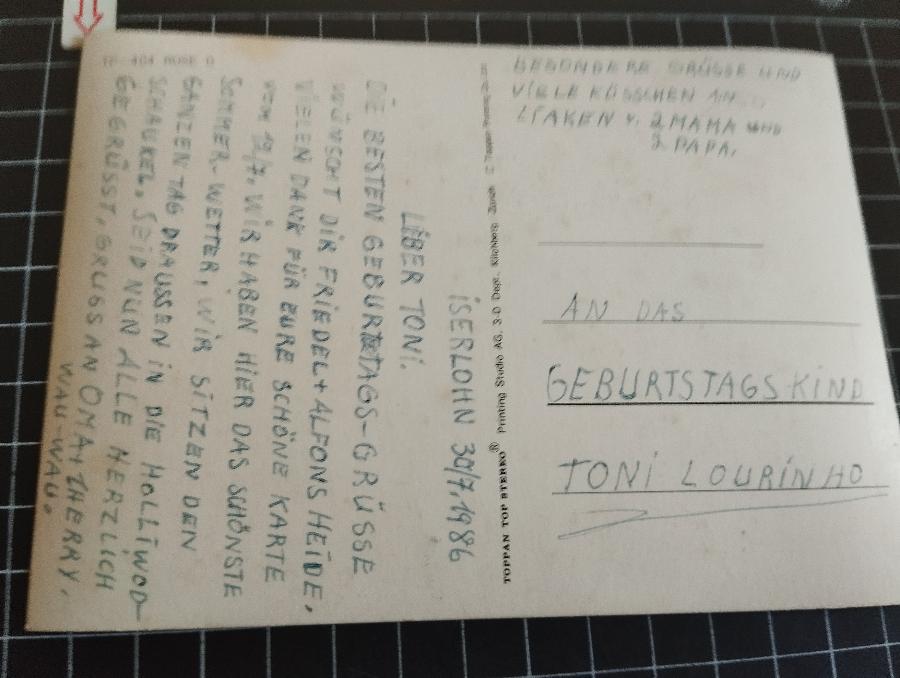 ISERLOHN 30/7.1986
LIBER TONI.
DIE BESTEN GEBURTSTAGS-GRÜSSE
WÜNSCHT DIR FRIEDEL+ALFONS HEIDE,
VIELEN DANK FÜR EURE SCHÖNE KARTE
VOM 12/7. WIR HABEN HIER DAS SCHÖNSTE
SOMMER-WETTER, WIR SITZEN DEN
GANZEN TAG DRAUSSEN IN DIE HOLLIWOD-
SCHAUKEL. SEID NUN ALLE HERZLICH
GEGRÜSST, GRUSS AN OMA+THERRY.
WAU-WAU.
TOPPAN TOP STEREO ® Printing Studio AG, S-D Dept.
BESONDERE GRÜSSE UND
VIELE KÜSSCHEN AN
V. 2 MAMA UND
2 PAPA.
AN DAS
GEBURTSTAGSKIND
TONI LOURINHO